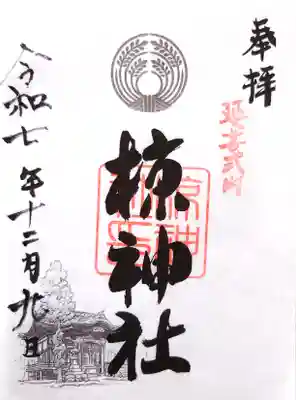 奉拝
延喜式内
椋神社
令和七年十二月九日